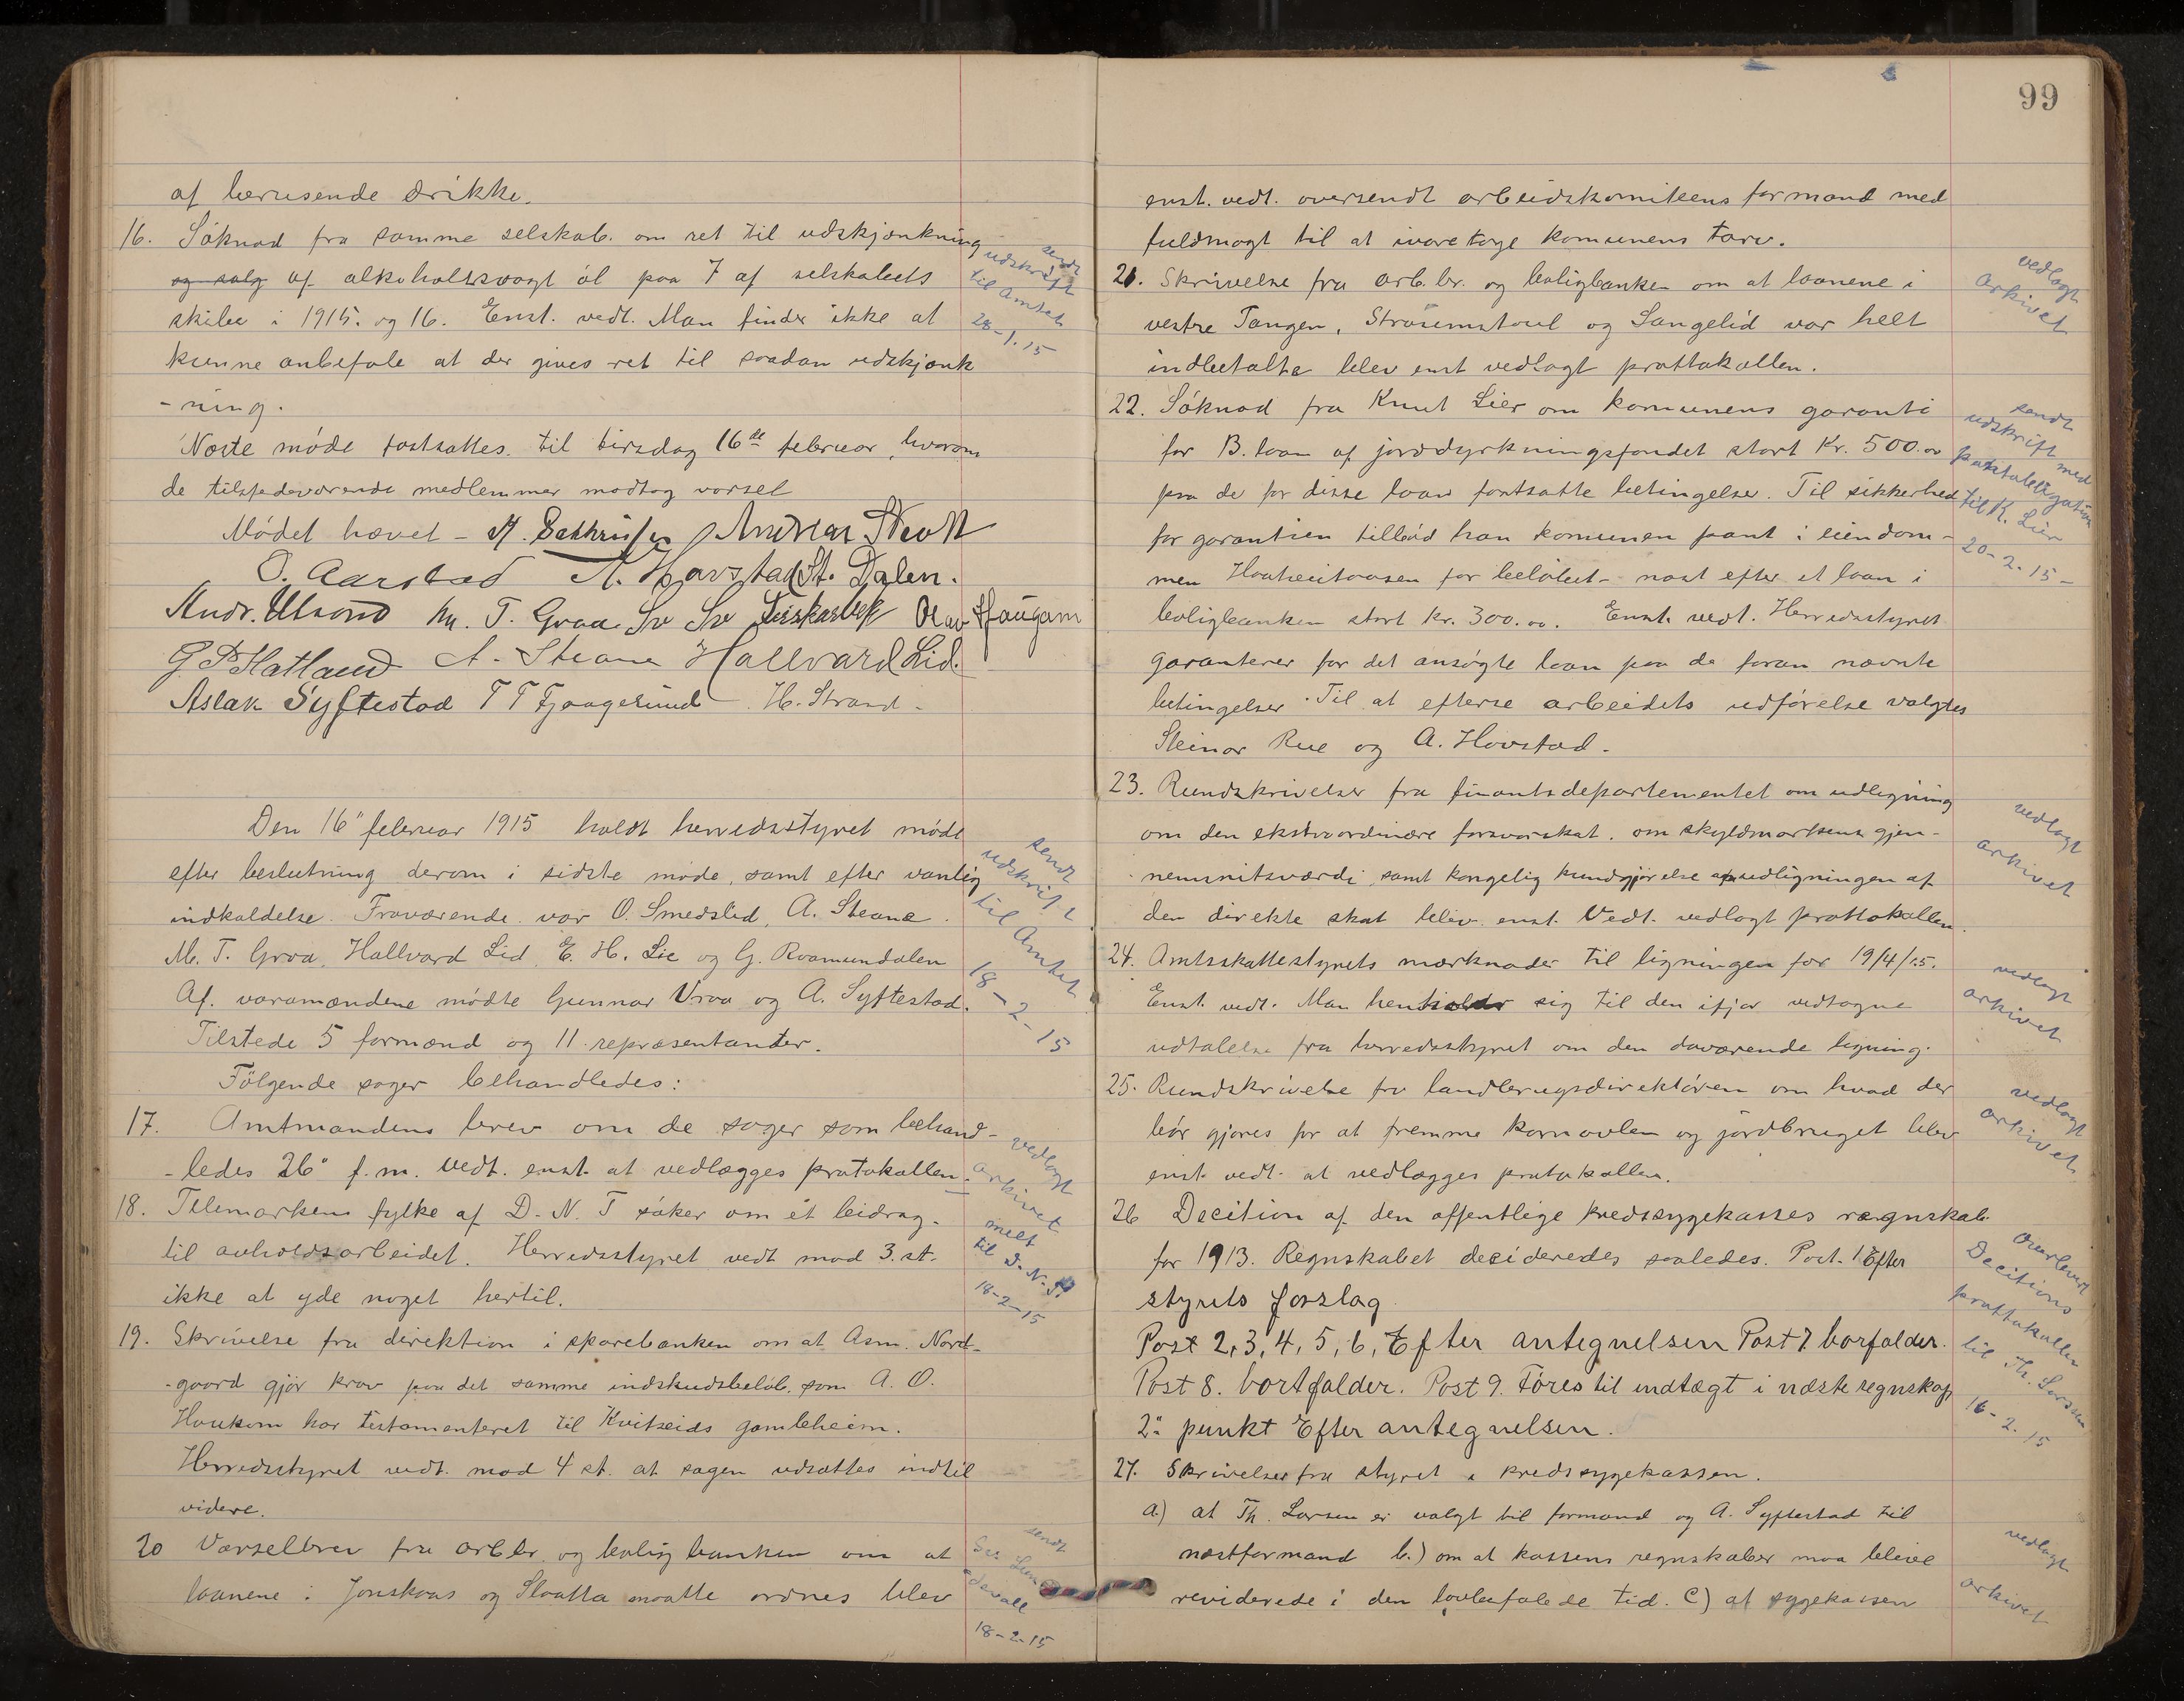 af berusende drikke.
16. Søknad fra samme selskab om ret til udskjænkning
og salg af alkoholsvagt øl paa 7 af selskabets
skibe i 1915. og 16. Enst. vedt. Man finder ikke at
kunne anbefale at der gives ret til saadan udskjænk
-ning.
sendt
udskrift
til Amtet
28-1.15
Næste møde fastsattes til tirsdag 16de februar, hvorom
de tilstedeværende medlemmer modtog varsel
Mødet hævet -
O. Aarstad A. Havstad St. Dalen.
Andr. Utsond M. T. Groa Olav Haugam
G. Hatland A. Steane Hallvard Lid.
Aslak Syftestad T T Fjaagesund H. Strand.
Den 16" februar 1915 holdt herredsstyret møde
efter beslutning derom i sidste møde, samt efter vanlig
indkaldelse. Fraværende var O. Smedslid, A. Steane.
M. T. Groa, Hallvard Lid, E. H. Lie og G. Raamundalen
Af varamændene mødte Gunnar Vraa og A. Syftestad.
Tilstede 5 formænd og 11 repræsentanter.
sendt
udskrift
til Amtet
18-2-15
Følgende sager behandledes:
17. Amtmandens brev om de sager som behand-
-ledes 26" f.m. Vedt. enst. at vedlægges protokollen.
vedlagt
arkivet
18. Telemarkens fylke af D. N. T søker om et bidrag
til avholdsarbeidet. Herredsstyret vedt mod 3. st.
ikke at yde noget hertil.
melt
til D. N. T.
18-2-15
19. Skrivelse fra direktion i sparebanken om at Asm. Nord-
-gaard gjør krav paa det samme indskudsbeløb, som A. O.
Haukom har testamenteret til Kvitseids gamleheim.
Herredsstyret vedt. mod 4 st. at sagen udsættes indtil
videre.
20 Varselbrev fra arb.br. og boligbanken om at
laanene i Jonskaas og Slaatta maatte ordnes blev
sendt
18-2-15
99
enst. vedt. oversendt arbeidskomiteens formand med
fuldmagt til at ivaretage komunens tarv.
21. Skrivelse fra arb.br. og boligbanken om at laanene i
vestre Tangen, Straumstoul og Langelid var helt
indbetalte blev enst vedlagt prottokollen.
vedlagt
Arkivet
22. Søknad fra Knut Lier om komunens garanti
for B. laan af jorddyrkningsfondet stort Kr. 500.00
paa de for disse laan fastsatte betingelser. Til sikkerhed
for garantien tilbød han komunen pant i eiendom-
men for beløbet - næst efter et laan i
boligbanken stort kr. 300.00. Enst. vedt. Herredsstyret
garanterer for det ansøgte laan paa de foran nævnte
betingelser. Til at efterse arbeidets udførelse valgtes
Steinar Rue og A. Hovstad.
sendt
udskrift med
pantobligation
til K. Lier
20-2.15-
23. Rundskrivelser fra finantsdepartementet om udligning
om den ekstraordinære forsvarskat. om skyldmarkens gjen-
-nemsnitsværdi, samt kongelig kundgjørelse om udligningen af
den direkte skat blev enst. Vedt. vedlagt prottokollen.
vedlagt
arkivet
24. Amtsskattestyrets mærknader til ligningen for 19/4/15.
Enst. vedt. Man henholder sig til den ifjor vedtagne
udtalelse fra herredsstyret om den daværende ligning.
vedlagt
arkivet
25. Rundskrivelse fra landbrugsdirektøren om hvad der
bør gjøres for at fremme kornavlen og jordbruget blev
enst vedt. at vedlægges protokollen.
vedlagt
arkivet.
26 Decition af den offentlige kredssygekasses rægnskab
for 1913. Regnskabet decideredes saaledes. Post. 1 Efter
styrets forslag
Post 2, 3, 4, 5, 6, Efter antegnelsen Post 7 borfalder.
Post 8. bortfalder. Post 9. Føres til indtægt i næste regnskap
2" punkt Efter antegnelsen.
Overlevert
Decitions
prottokollen
til Th. Larsen
16-2.15
27. Skrivelser fra styret i kredssygekassen.
a) at Th. Larsen er valgt til formand og A. Syftestad til
næstformand b.) om at kassens regnskaber maa blive
reviderede i den lovbefalede tid. C) at sygekassen
vedlagt
arkivet